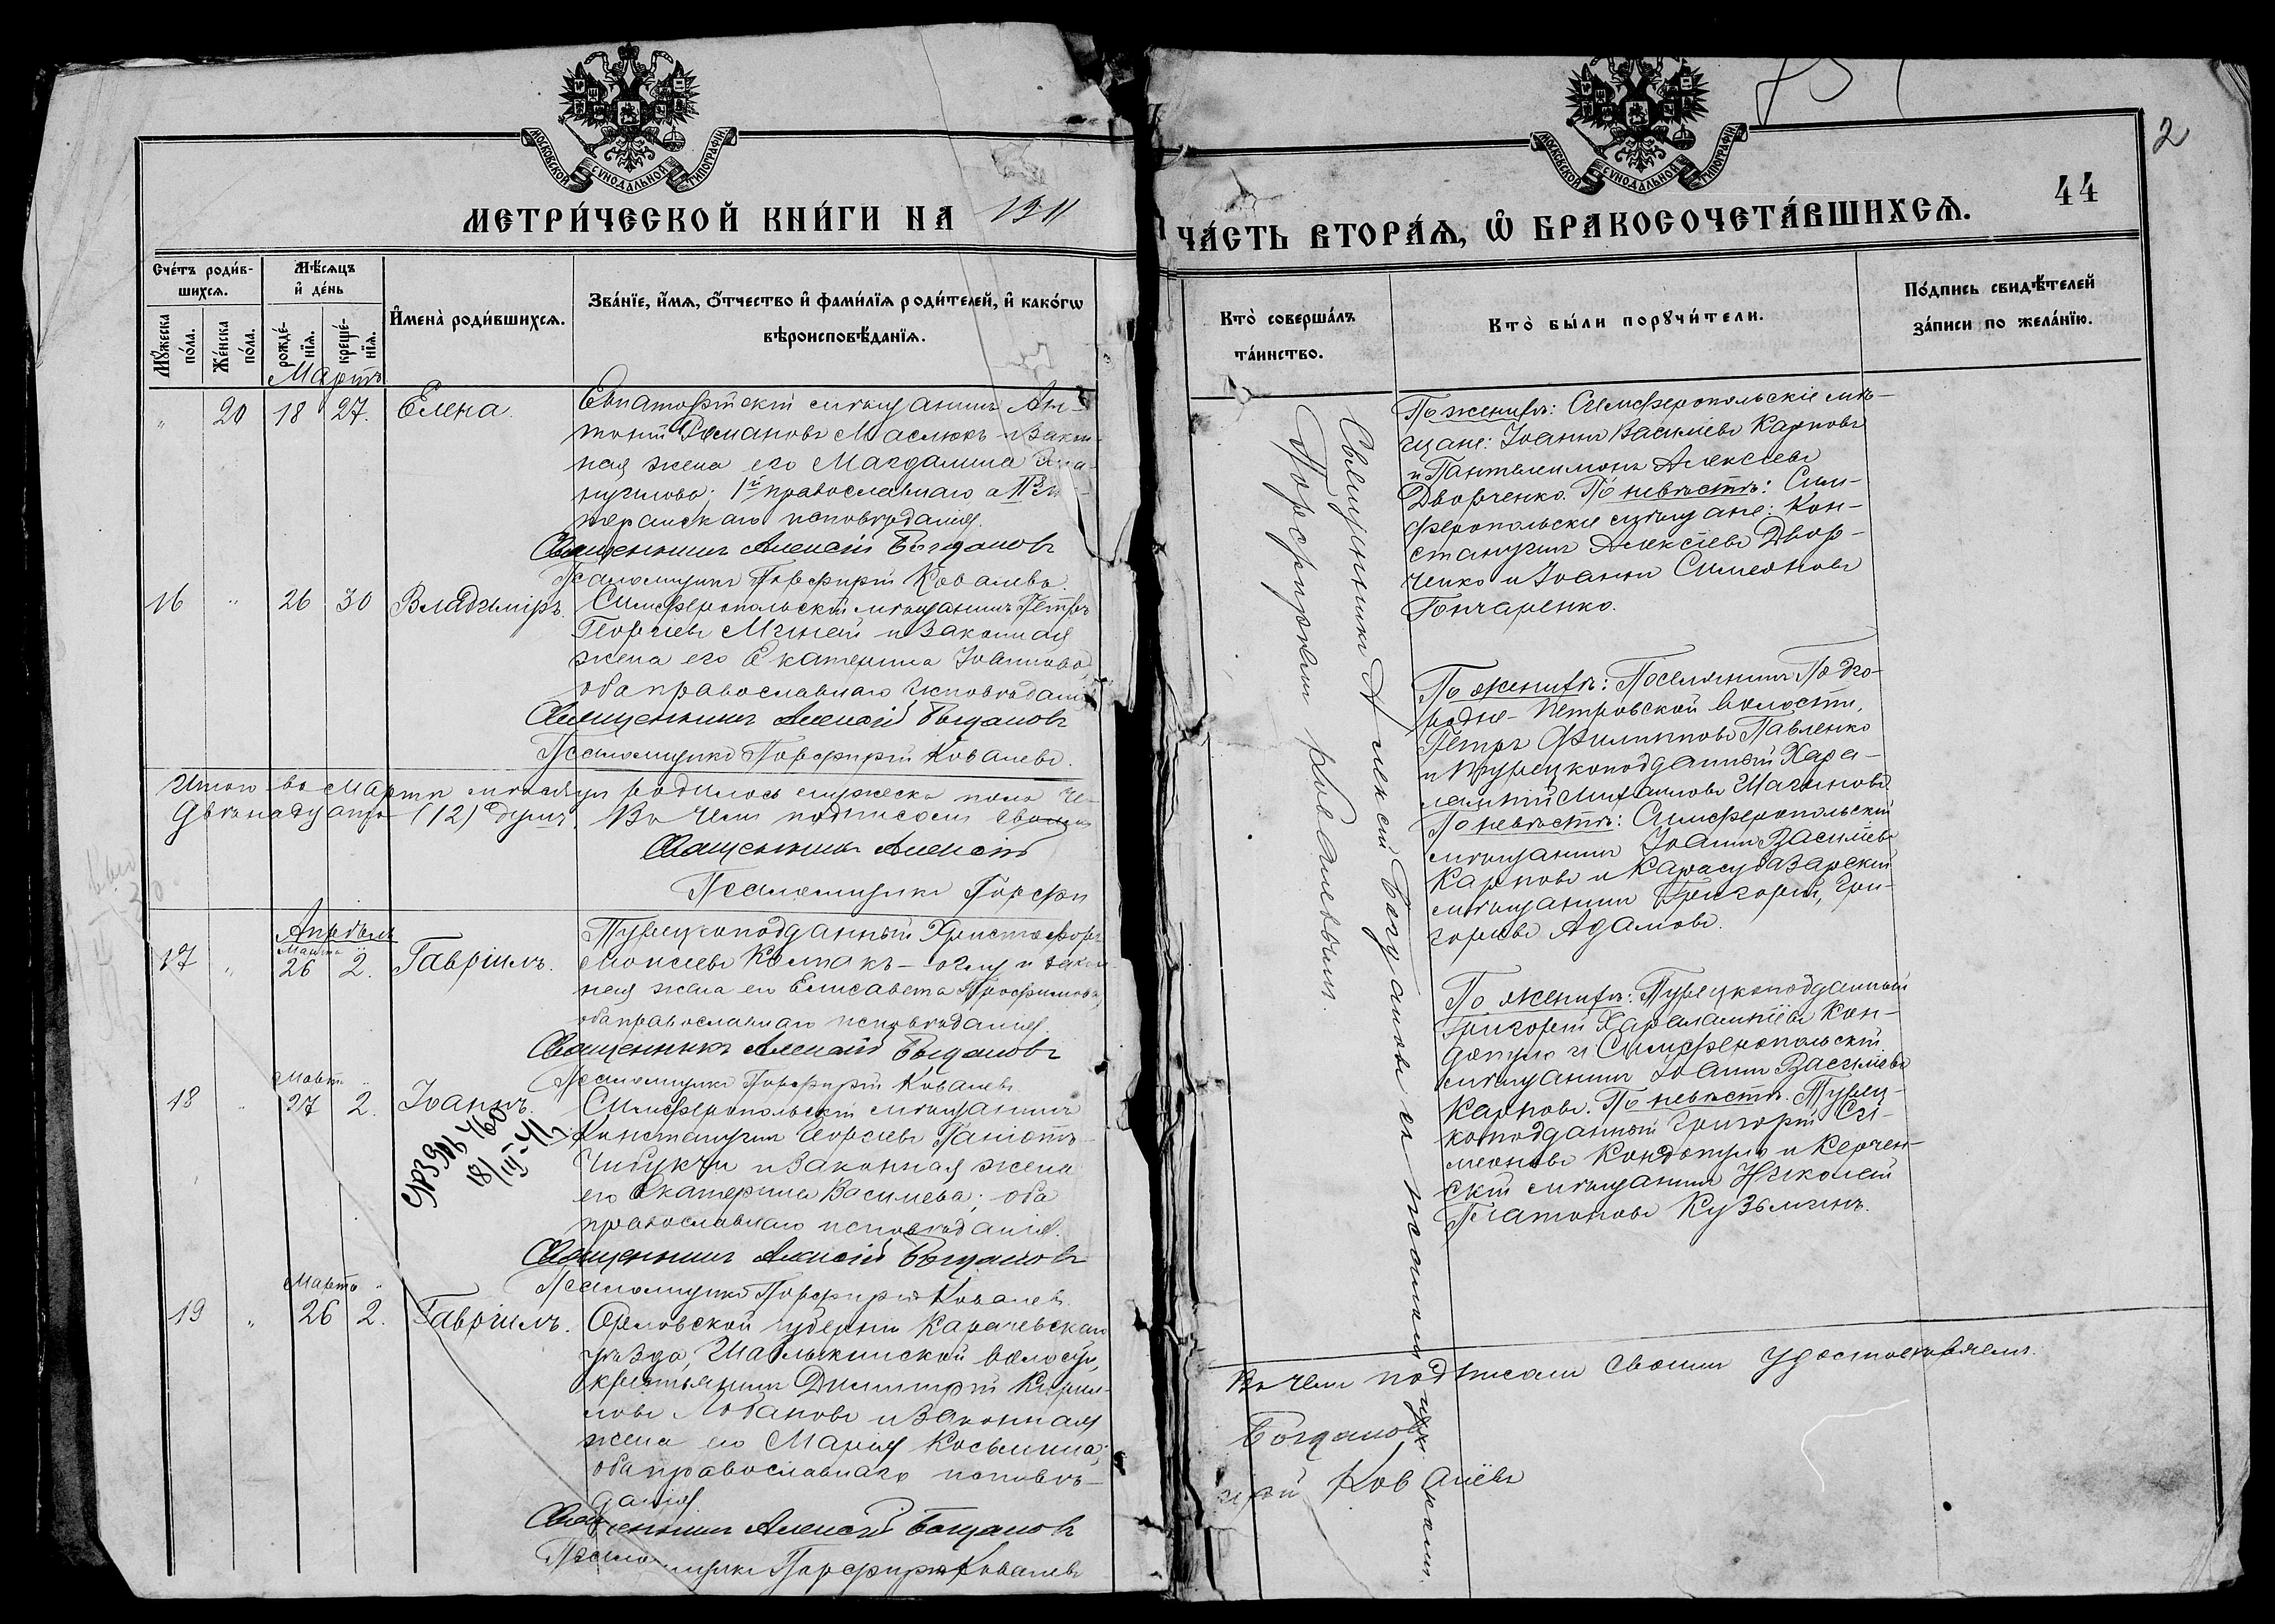 МОСКОВСКОЙ СѴНОДАЛЬНОЙ ТИПОГРАФІИ
МЕТРИ́ЧЕСКОЙ КНИ́ГИ НА 1911
Сче́тъ роди́в-
шихсѧ.
Мꙋ́жеска
по́ла.
Же́нска
по́ла.
Мѣ́сѧцъ
и҆ де́нь
рожде́-
нїѧ.
креще́-
нїѧ.
И҆мена̀ роди́вшихсѧ.
Зва́нїе, и҆́мѧ, ѻ҆́тчество и҆ фами́лїѧ роди́телей, и҆ како́гѡ
вѣроисповѣ́данїѧ.
Мартъ
„ 20 18 27. Елена.
Евпаторійскій мѣщанинъ Ан-
тоній Романовъ Маслюкъ и закон-
ная жена его Магдалина
1й православнаго а
исповѣданія.
Священникъ Алексій Богдановъ
Псаломщикъ Порфирій Ковалевъ.
16 „ 26 30 Владиміръ.
Симферопольскій мѣщанинъ Петръ
Георгіевъ и законная
жена его Екатерина Іоаннова,
оба православнаго исповѣданія
Священникъ Алексій Богдановъ
Псаломщикъ Порфирій Ковалевъ.
Итого въ Мартѣ мѣсяцѣ родилось мужеска пола
двѣнадцать (12) душъ. Въ чемъ подписомъ своимъ
Священникъ Алексій
Псаломщикъ Порфи
Апрѣль
Марта
17 „ 26 2. Гавріилъ.
Турецкоподданный Христофоръ
Моисеевъ Колпакъ-оглу и закон-
ная жена его Елисавета Трофимова,
оба православнаго исповѣданія.
Священникъ Алексій Богдановъ
Псаломщикъ Порфирій Ковалевъ
Марта „
18 „ 27 2. Іоаннъ.
Симферопольскій мѣщанинъ
Константинъ Георгіевъ
Чибукчи и законная жена
его Екатерина Васильева; оба
православнаго исповѣданія.
Священникъ Алексій Богдановъ
Псаломщикъ Порфирій Ковалевъ.
760
18/III-41
Марта „
19 „ 26 2. Гавріилъ.
Орловской губерніи Карачевскаго
уѣзда, Шаблыкинской волости,
крестьянинъ Димитрій Кирил-
ловъ Лобановъ и законная
жена его Марія Косьмина;
оба православнаго исповѣ-
данія.
Священникъ Алексій Богдановъ
Псаломщикъ Порфирій Ковалевъ
МОСКОВСКОЙ СѴНОДАЛЬНОЙ ТИПОГРАФІИ
2
44
ЧА́СТЬ ВТОРА́Ѧ, Ѡ҆ БРАКОСОЧЕТА́ВШИХСѦ.
Кто̀ соверша́лъ
та́инство.
Кто̀ бы́ли порꙋчи́тели.
По́дпись свидѣ́телей
за́писи по жела́нїю.
Священникъ Алексій Богдановъ съ псаломщикомъ
Порфиріемъ Ковалевымъ.
По женихѣ: Симферопольскіе мѣ-
щане: Іоаннъ Васильевъ Карповъ
и Пантелимонъ Алексіевъ
Дворченко. По невѣстѣ: Сим-
феропольскіе мѣщане: Кон-
стантинъ Алексіевъ Двор-
ченко и Іоаннъ Симеоновъ
Гончаренко.
По женихѣ: Поселянинъ Подго-
родне-Петровской волости,
Петръ Филипповъ Павленко
и турецкоподданный Хара-
лампій Михаиловъ Шагиновъ
По невѣстѣ: Симферопольскій
мѣщанинъ Іоаннъ Васильевъ
Карповъ и Карасубазарскій
мѣщанинъ Григорій Гри-
горьевъ Адамовъ.
По женихѣ: Турецкоподданный
Григорій Харалампіевъ Кон-
допуло и Симферопольскій
мѣщанинъ Іоаннъ Васильевъ
Карповъ. По невѣстѣ: Турец-
коподданный Григорій Си-
меоновъ Кондопуло и Керчен-
скій мѣщанинъ Николай
Платоновъ Кузьминъ.
Въ чемъ подписомъ своимъ удостовѣряемъ.
Богдановъ
рій Ковалевъ